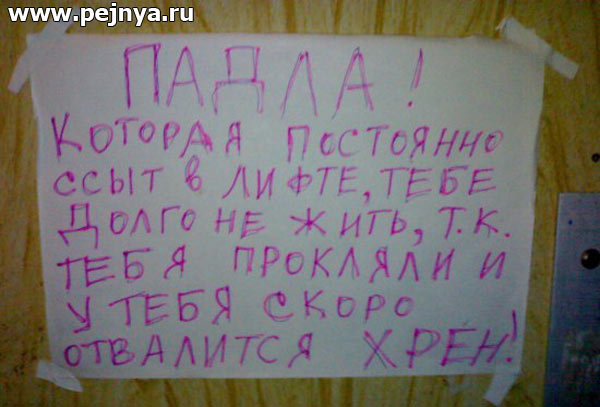 www.pejnya.ru
ПАДЛА!
КОТОРАЯ ПОСТОЯННО
ССЫТ В ЛИФТЕ, ТЕБЕ
ДОЛГО НЕ ЖИТЬ, Т.К.
ТЕБЯ ПРОКЛЯЛИ И
У ТЕБЯ СКОРО
ОТВАЛИТСЯ ХРЕН!